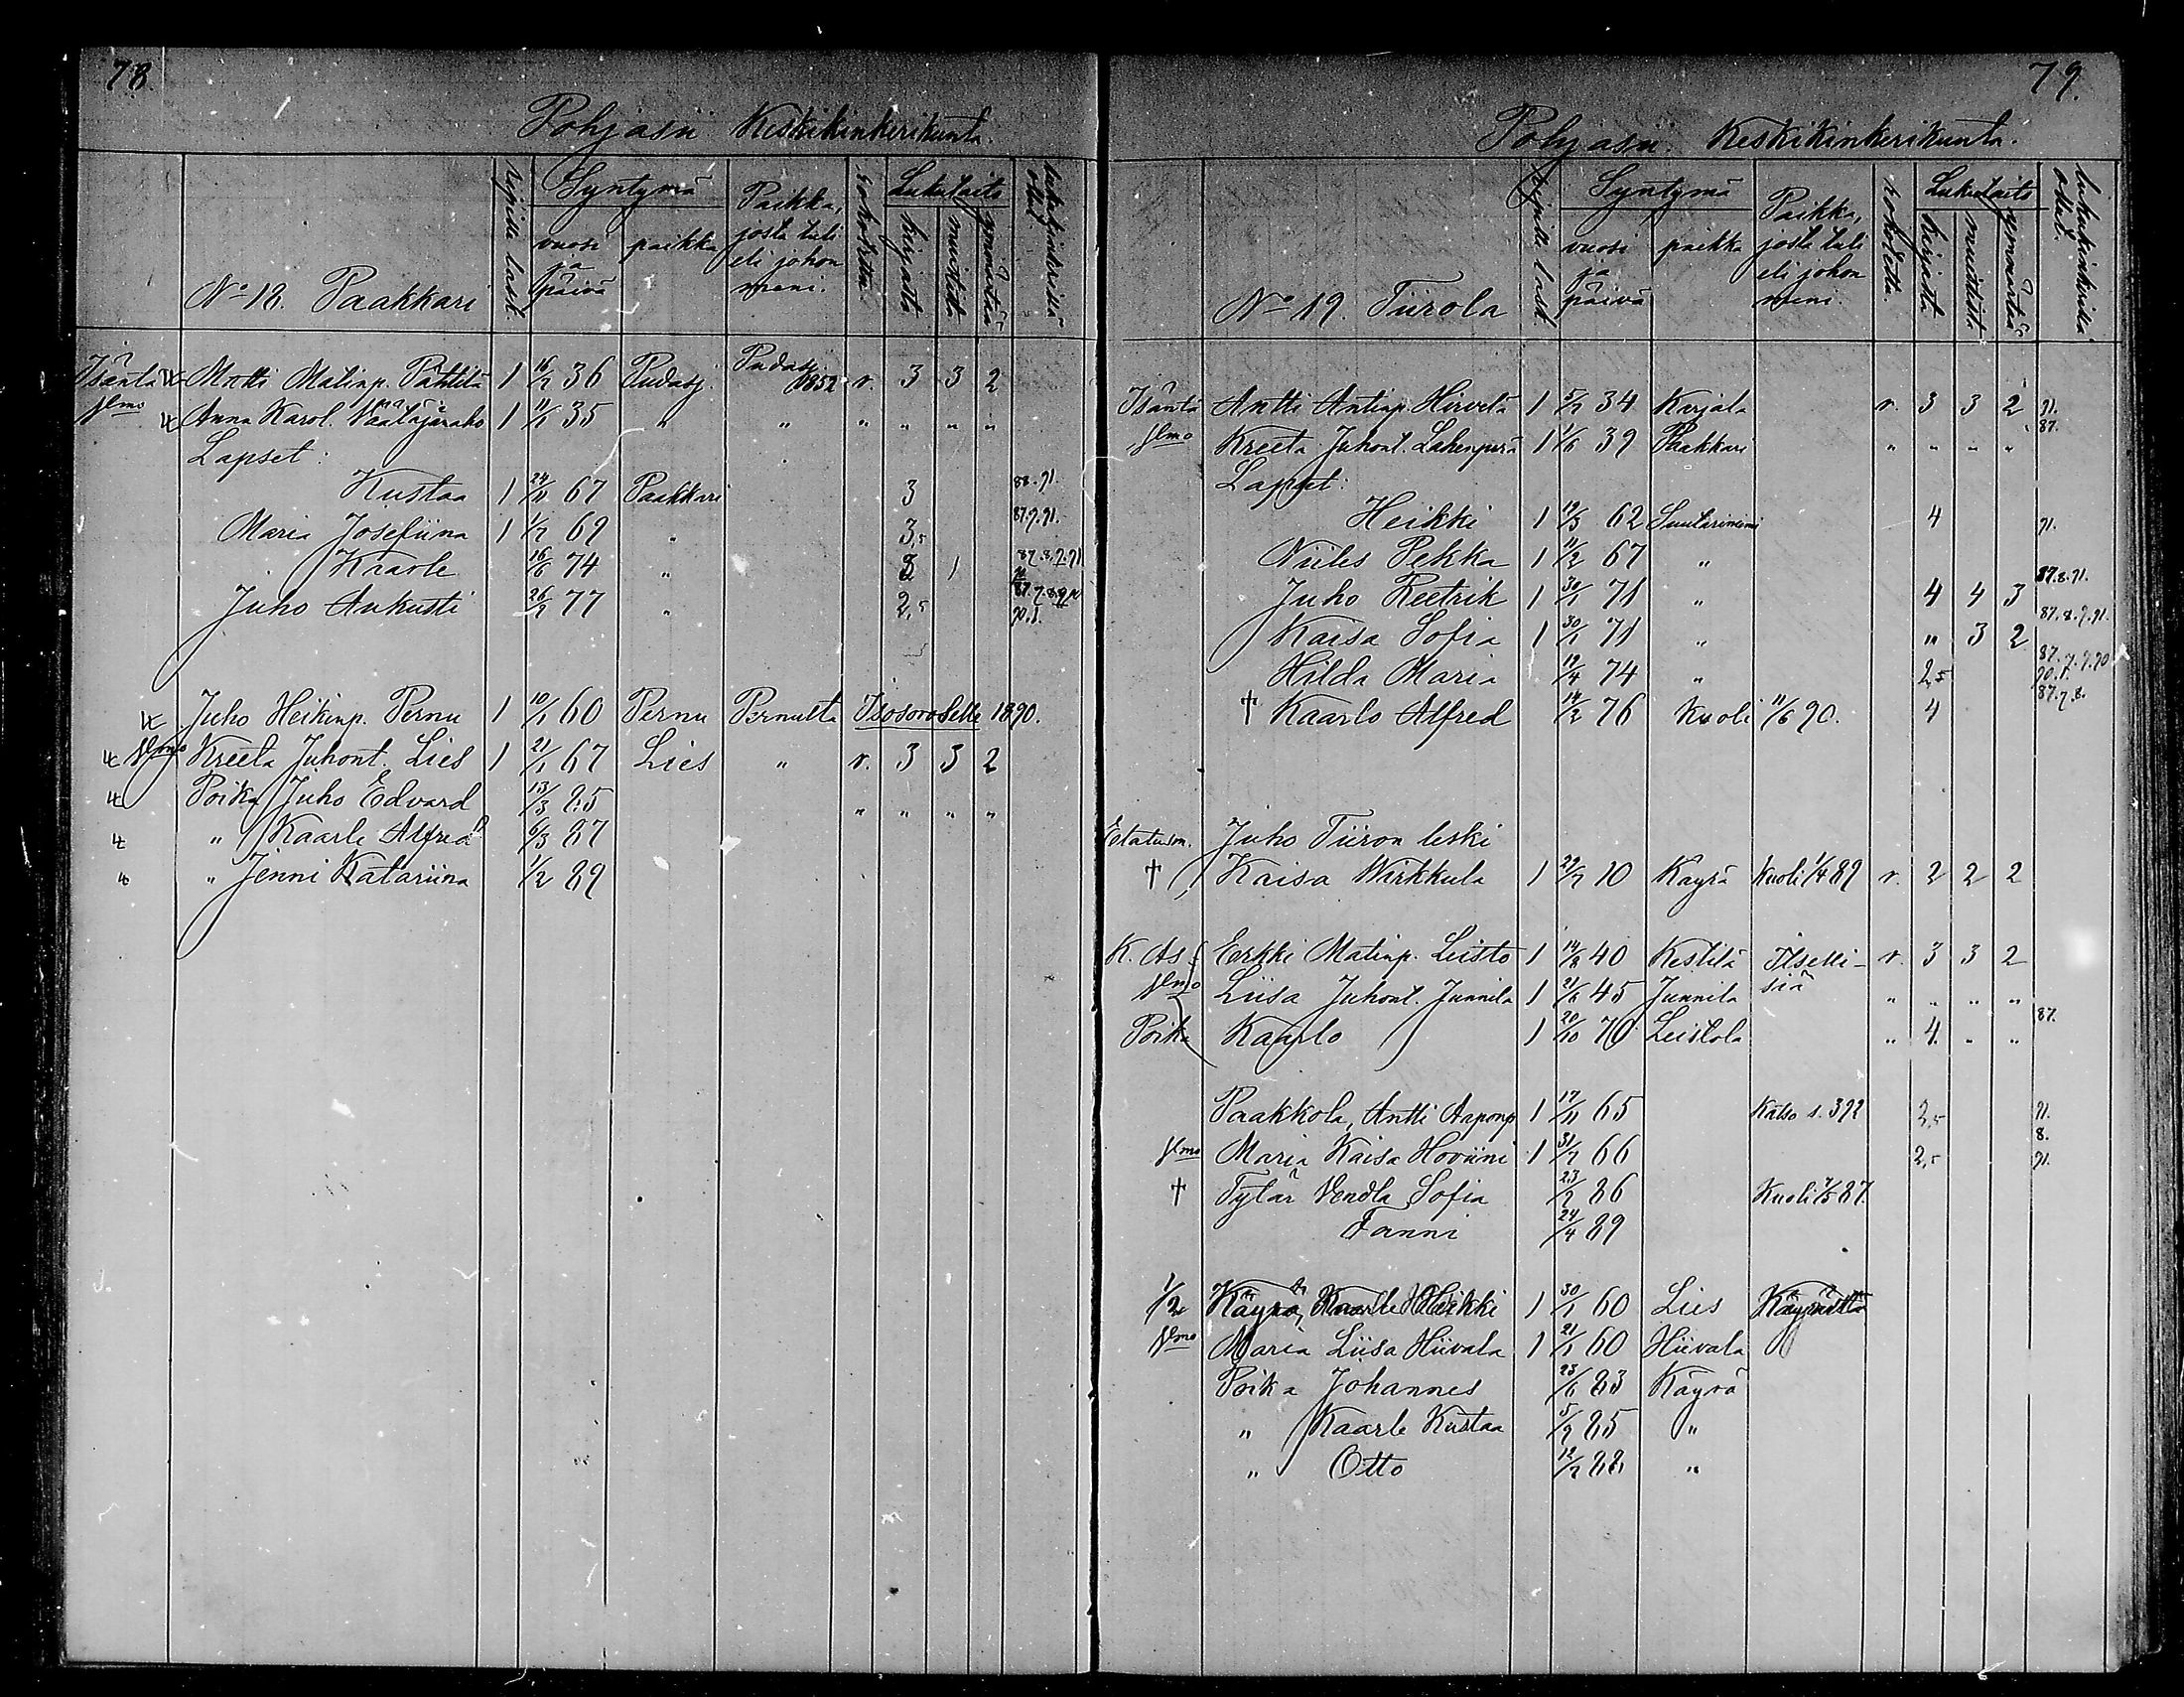 78.
Pohjasii Keskikinkerikunta.
Syntymä
Lukutaito
vuosi ja päivä
paikka
Paikka, josta tuli eli johon meni.
kirjasta
muistista
ymmärtää
N:o 18. Paakkari
Isäntä Matti Matinp. Pahtila 1 16/7 36 Pudasj. Pudasj. 1852 r. 3 3 2
Anna Karol. 1 11/1 35 " " " " " "
Lapset:
Kustaa 1 24/11 67 Paakkari 3 88.91.
Maria Josefiina 1 1/7 69 " 3,5 87.9.91.
Kaarle 16/6 74 " 3 1 87.8.9.91
Juho Aukusti 26/9 77 " 2,5 90.1.
Juho Heikinp. Pernu 1 10/1 60 Pernu Pernulta Isosoroselle 1890.
Kreeta Juhont. Lies 1 21/1 67 Lies " r. 3 3 2
Poika Juho Edvard 13/3 85 " " " "
" Kaarle Alfred 6/3 87
" Jenni Katariina 1/2 89
79.
Pohjasii Keskikinkerikunta.
Syntymä
Lukutaito
vuosi ja päivä
paikka
Paikka, josta tuli eli johon meni.
kirjasta
muistista
ymmärtää
N:o 19. Tiirola
Isäntä Antti Antinp. Hirvelä 1 5/7 34 Karjala r. 3 3 2 91.
Kreeta Juhont. Lahenperä 1 1/6 39 Paakkari " " " " 87.
Lapset:
Heikki 1 19/3 62 Suutariniemi 4 91.
Niiles Pekka 1 11/2 67 "
Juho Reetrik 1 30/1 71 " 4 4 3 87.8.91.
Kaisa Sofia 1 30/1 71 " " 3 2 87.8.9.91.
Hilda Maria 19/4 74 " 2,5 87.7.9.90
† Kaarlo Alfred 14/2 76 Kuoli 11/6 90. 4 87.7.8.
Juho Tiiron leski
† Kaisa Wirkkula 1 29/7 10 Käyrä Kuoli 1/4 89 r. 2 2 2
K. As. Erkki Matinp. Leisto 1 14/8 40 Kestilä Itselli-
Liisa Juhont. Junnila 1 21/6 45 Junnila siä " " " "
r. 3 3 2
Poika Kaarlo 1 20/10 70 Leistola " 4. " " 87.
Paakkola, Antti Aaponp 1 17/11 65 Katso s. 392 2,5 91.
Maria Kaisa Hoviini 1 31/7 66 2,5 8. 91.
† Tytär Vendla Sofia 23/9 86 Kuoli 7/5 87.
Fanni 24/4 89
1/2 Käyrä, Kaarle Heikki 1 30/1 60 Lies Käyrältä
Maria Liisa Hiivala 1 21/1 60 Hiivala
Poika Johannes 23/6 83 Käyrä
" Kaarle Kustaa 5/9 85 "
" Otto 12/7 88 "